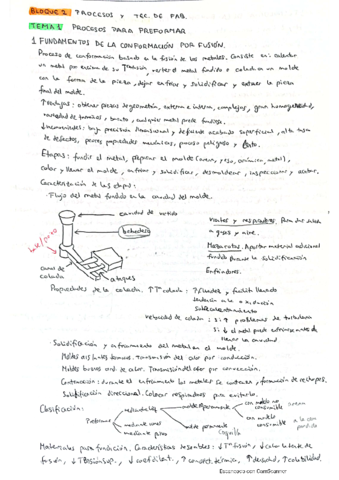 BLOQUE 2 PROCESOS Y TEC. DE FAB.
TEMA 6 PROCESOS PARA PREFORMAR
1 FUNDAMENTOS DE LA CONFORMACIÓN POR FUSIÓN.
Proceso de conformación basado en la fusión de los metales. Consiste en: calentar
un metal por encima de su Tfusión, verter el metal fundido o colada en un molde
con la forma de la pieza, dejar enfriar y solidificar y extraer la pieza
final del molde.
↑Ventajas: obtener piezas de geometría, externa e interna, complejas, gran homogeneidad,
variedad de tamaños, barato, cualquier metal puede fundirse.
↓Inconvenientes: baja precisión dimensional y deficiente acabado superficial, alta tasa
de defectos, peores propiedades mecánicas, proceso peligroso y
Etapas: fundir el metal, preparar el molde (arena, yeso, cerámica, metal),
colar y llenar el molde, enfriar y solidificar, desmoldear, inspeccionar y acabar.
Caracterización de las etapas:
· Flujo del metal fundido en la cavidad del molde.
cavidad de vertido
bebedero
canal de
colada
ataques
Vientos y respiraderos. Para dar salida
a gases y aire.
Mazarotas. Aportar material adicional
fundido durante la solidificación
Enfriadores.
Propiedades de la colada. ↑Tª colada: ↑fluidez y facilita llenado
tendencia a la oxidación
Velocidad de colada: si ↑ problemas de turbulencia
si ↓ el metal puede enfriarse antes de
llenar la cavidad
· Solidificación y enfriamiento del metal en el molde.
Moldes aislantes térmicos. Transmisión del calor por conducción.
Moldes buenos cond. de calor. Transmisión del calor por convección.
Contracción: durante el enfriamiento los metales se contraen, formación de rechupes.
Solidificación direccional. Colocar respiraderos para evitarlo.
Clasificación:
Preformas
molde permanente
con modelo no
consumible
arena
molde permanente
coquilla
con modelo
consumible
a la cera
perdida
Materiales para fundición. Características deseables: ↓Tª fusión, ↓ calor latente de
fusión, ↓ Tensión sup., ↓ coef. dilat., ↑ conduct. térmica, ↑ densidad, ↑ colabilidad.
Escaneado con CamScanner